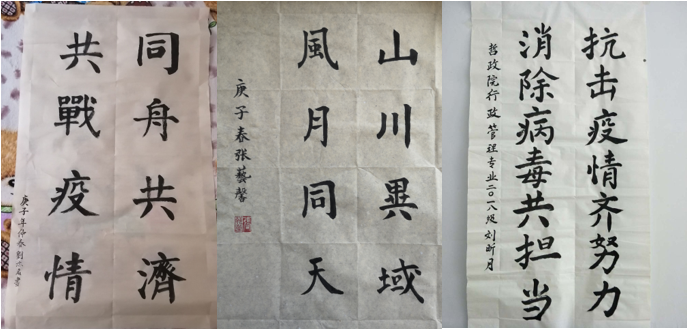 同舟共濟
共戰疫情
庚子年仲春
山川異域
風月同天
庚子春張藝馨
抗击疫情齐努力
消除病毒共担当
哲政院行政管理专业二〇一八级刘昕月